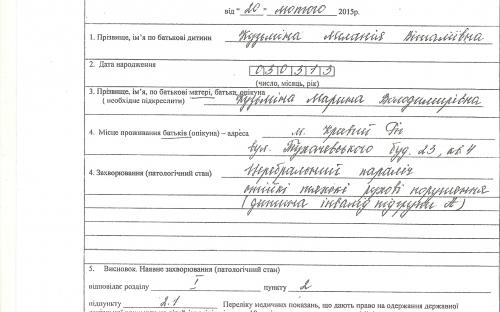 від "20" лютого 2015р.
1. Прізвище, ім'я, по батькові дитини Кузьміна Меланія Віталіївна
2. Дата народження
030313
(число, місяць, рік)
3. Прізвище, ім'я, по батькові матері, батька, опікуна
( необхідне підкреслити) Кузьміна Марина Володимирівна
4. Місце проживання батьків (опікуна) – адреса м. Кривий Ріг
вул. Тухачевського буд. 23, кв 4
4. Захворювання (патологічний стан) Церебральний параліч
стійкі тяжкі рухові порушення
(дитина інвалід підгрупи А)
5. Висновок. Наявне захворювання (патологічний стан)
відповідає розділу I пункту 2
підпункту 2.1 Переліку медичних показань, що дають право на одержання державної